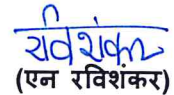 रविशंकर
(एन रविशंकर)